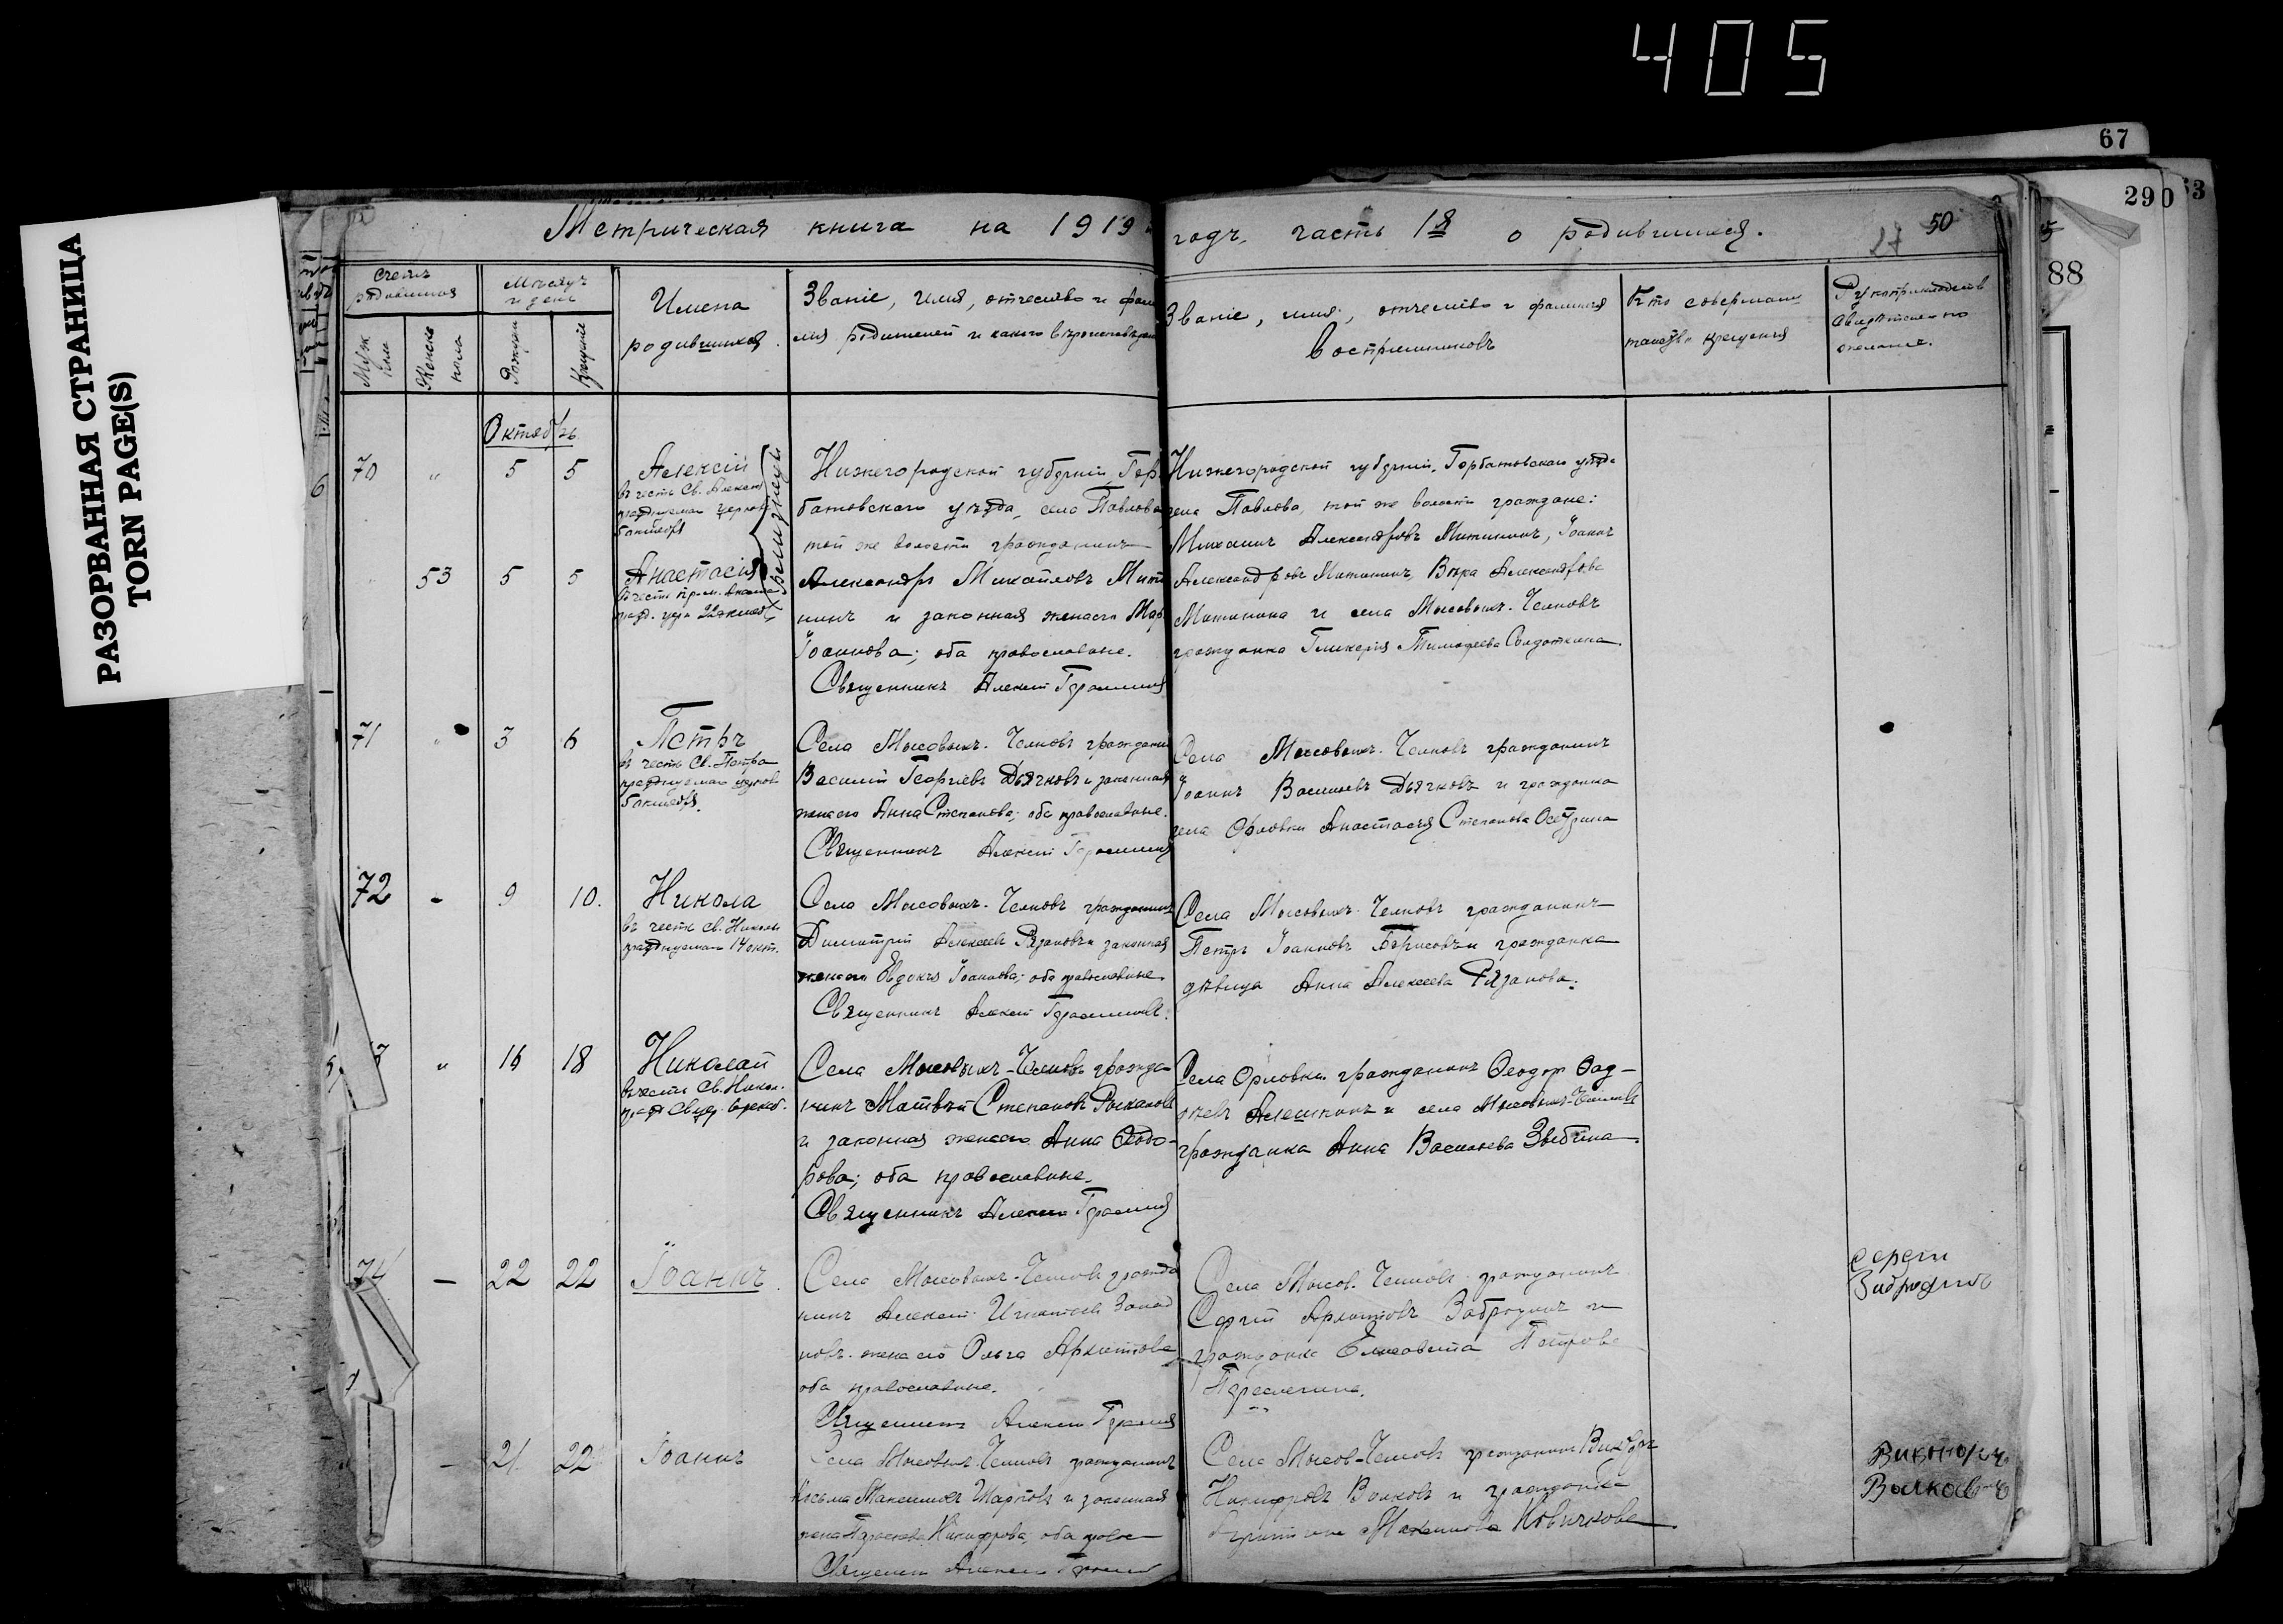 405
67
290
63
88
РАЗОРВАННАЯ СТРАНИЦА
TORN PAGE(S)
Метрическая книга на 1919
годъ, часть 1я о родившихся.
27 50
Счетъ
родившихся
Муж.
пола
Женск.
пола
Мѣсяцъ
и день
Рожден.
Крещенія
Имена
родившихся.
Званіе, имя, отчество и фами
лія родителей и какого вѣроисповѣданія
Званіе, имя, отчество и фамилія
воспріемниковъ
Кто совершалъ
таинство крещенія
Рукоприкладство
свидѣтелей по
желанію.
Октябрь
70 " 5 5
Алексій
въ честь Св. Алексія
празднуемаго
5 октября
53 5 5
Анастасія
близнецы
Нижегородской губерніи, Гор-
батовскаго уѣзда, села Павлова,
той же волости гражданинъ
Александръ Михайловъ Мити
нинъ и законная жена его Мар.
Іоаннова; оба православные.
Священникъ Алексій
Нижегородской губерніи, Горбатовскаго уѣзда
села Павлова, той же волости граждане:
Михаилъ Александровъ Митининъ, Іоаннъ
Александровъ Митининъ, Вѣра Александрова
Митинина и села Мысовыхъ-Челновъ
гражданка Гликерія Тимофеева Солдаткина
71 " 3 6
Петръ
въ честь Св. Петра
празднуемаго
5 октября.
Села Мысовыхъ-Челновъ граждани
Василій Георгіевъ Дьячковъ и законная
жена его Анна Степанова; оба православные.
Священникъ Алексій
Села Мысовыхъ-Челновъ гражданинъ
Іоаннъ Васильевъ Дьячковъ и гражданка
села Орловки Анастасія Степанова
72 - 9 10.
Никола
въ честь св. Николы
празднуемаго 14 окт.
Села Мысовыхъ-Челновъ гражданинъ
Димитрій Алексеевъ Рязановъ и законная
жена его Евдокія Іоаннова; оба православные
Священникъ Алексій
Села Мысовыхъ-Челновъ гражданинъ
Петръ Іоанновъ Борисовъ и гражданка
дѣвица Анна Алексеева Рязанова.
3 " 16 18
Николай
въ честь Св. Никол.
Села Мысовыхъ-Челновъ гражда-
нинъ Матвѣй Степановъ
и законная жена его Анна Ѳеодо-
рова; оба православные.
Священникъ Алексій
Села Орловки гражданинъ Ѳеодоръ Ѳад-
ѣевъ Алешкинъ и села Мысовыхъ-Челновъ
гражданка Анна Васильева Зыбина
74 — 22 22
Іоаннъ
Села Мысовыхъ-Челновъ гражда
нинъ Алексій Игнатьевъ
новъ жена его Ольга Архипова
оба православные.
Священникъ Алексій
Села Мысов. Челновъ гражданинъ
Сергій Архиповъ Забродинъ и
гражданка Елисавета Петрова
Сергей
Забродинъ
- 21 22
Іоаннъ
Села Мысовыхъ-Челновъ гражданинъ
Косьма Максимовъ Шарповъ и законная
жена Параскева Никифорова, оба право
Священник Алексій
Села Мысов-Челновъ гражданинъ Викторъ
Никифоровъ Волковъ и гражданка
Максимова Новичкова
Викторъ
Волковъ